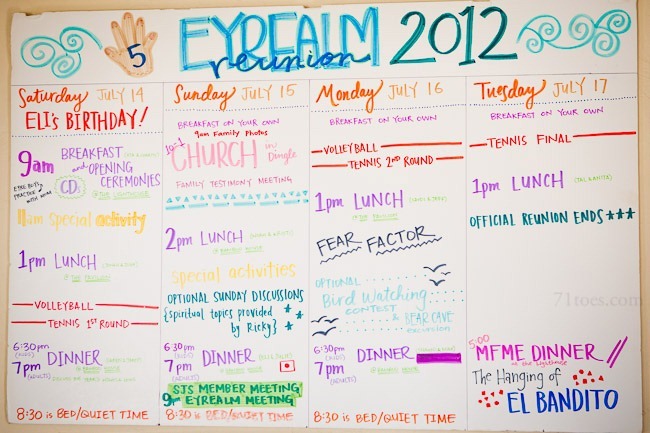 5
EYREALM 2012
reunion
Saturday JULY 14
ELI's BIRTHDAY!
9am BREAKFAST
and OPENING
CEREMONIES
CDs
PRACTICE
WITH MOM
11am special activity
1pm LUNCH
VOLLEYBALL
TENNIS 1ST ROUND
6:30pm
(KIDS)
7pm DINNER
(ADULTS)
8:30 is BED/QUIET TIME
Sunday JULY 15
BREAKFAST ON YOUR OWN
9am Family Photos
CHURCH in Dingle
FAMILY TESTIMONY MEETING
2pm LUNCH
special activities
OPTIONAL SUNDAY DISCUSSIONS
{spiritual topics provided
by Ricky}
6:30pm
(KIDS)
7pm DINNER
(ADULTS)
SJS MEMBER MEETING
9pm EYREALM MEETING
8:30 is BED/QUIET TIME
Monday JULY 16
BREAKFAST ON YOUR OWN
VOLLEYBALL
TENNIS 2ND ROUND
1pm LUNCH
FEAR FACTOR
OPTIONAL
Bird Watching
CONTEST
& BEAR CAVE
excursion
6:30pm
(KIDS)
7pm DINNER
(ADULTS)
8:30 is BED/QUIET TIME
Tuesday JULY 17
BREAKFAST ON YOUR OWN
TENNIS FINAL
1pm LUNCH
OFFICIAL REUNION ENDS
71toes.com
5:00
MFME DINNER
at the Lighthouse
The Hanging of
EL BANDITO